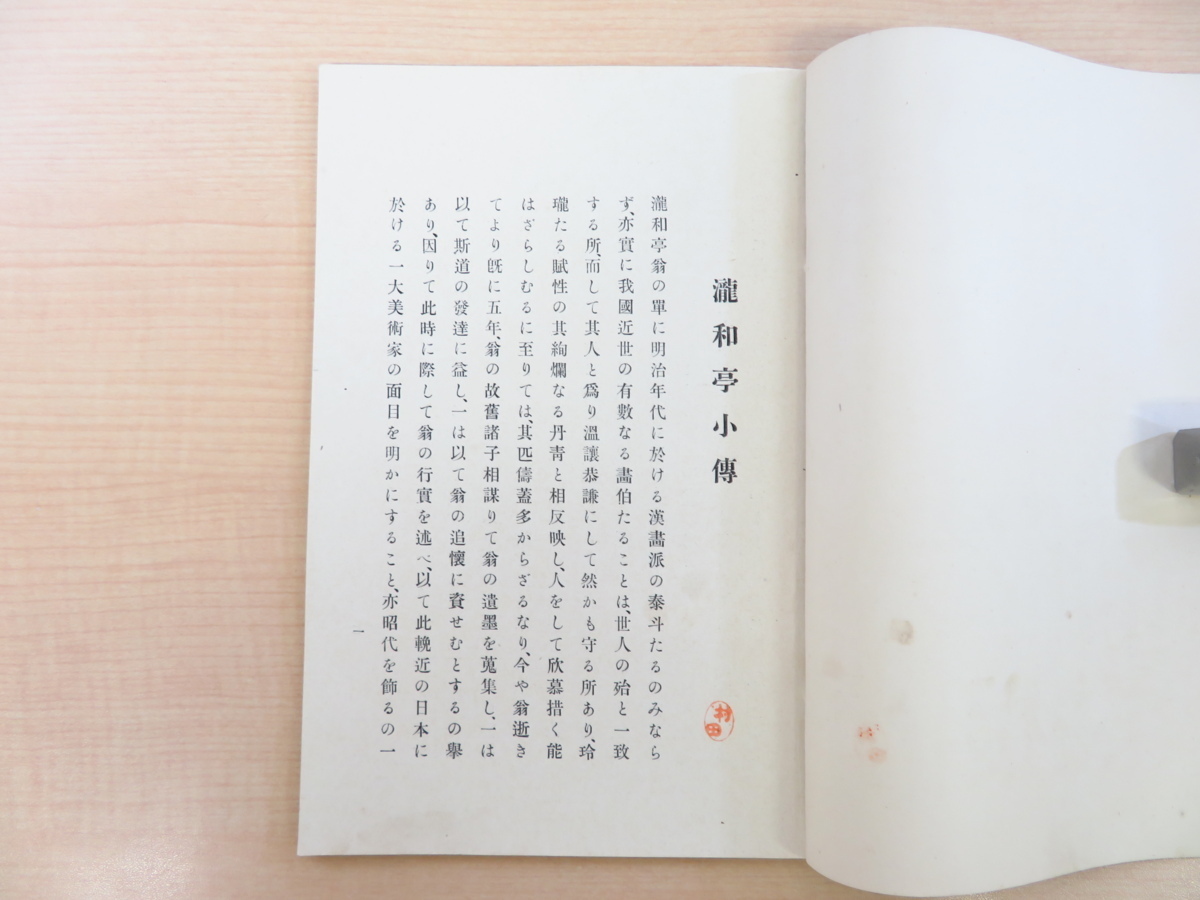 瀧和亭小傳
村田
瀧和亭翁の單に明治年代に於ける漢畵派の泰斗たるのみなら
ず、亦實に我國近世の有數なる畵伯たることは、世人の殆と一致
する所、而して其人と爲り溫讓恭謙にして然かも守る所あり、玲
瓏たる賦性の其絢爛なる丹靑と相反映し、人をして欣慕措く能
はざらしむるに至りては、其匹儔蓋多からざるなり、今や翁逝き
てより旣に五年、翁の故舊諸子相謀りて翁の遺墨を蒐集し、一は
以て斯道の發達に益し、一は以て翁の追懷に資せむとするの擧
あり、因りて此時に際して翁の行實を述べ、以て此輓近の日本に
於ける一大美術家の面目を明かにすること、亦昭代を飾るの一
一